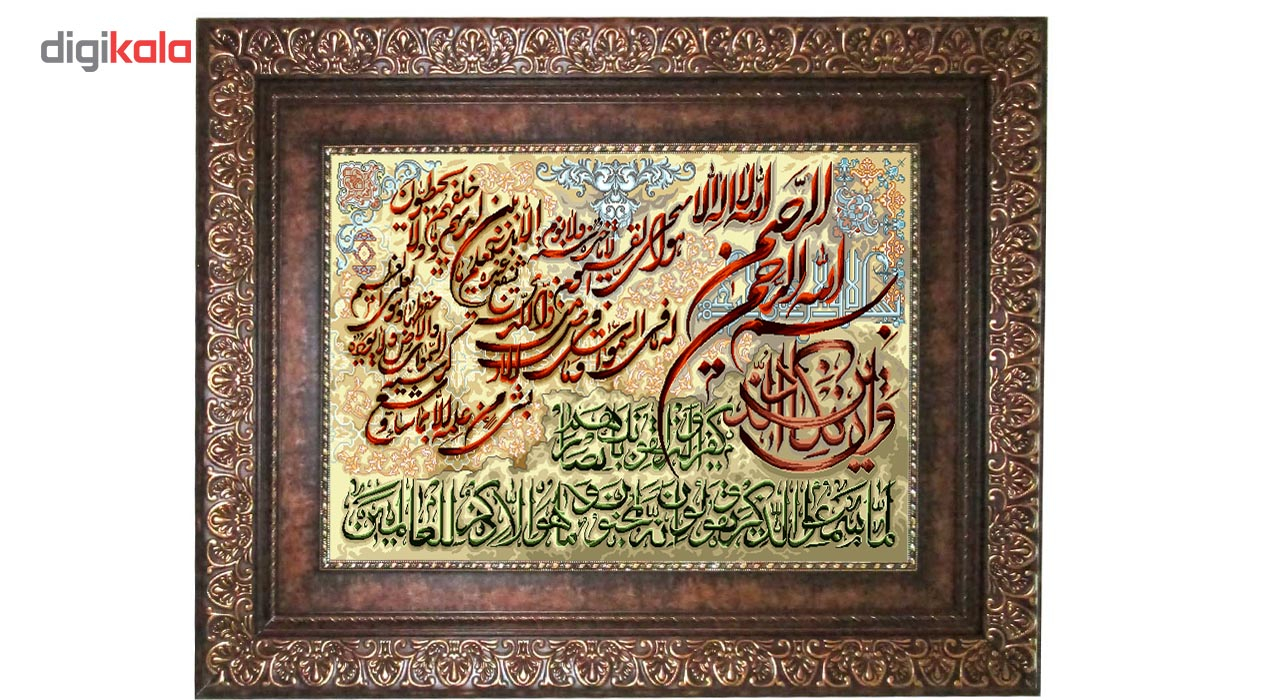 digikala
بسم الله الرحمن الرحیم
الله لا اله الا
هو الحی القیوم لا تاخذه سنة ولا نوم
له ما فی السموات و ما فی الارض من ذا الذی
یشفع عنده الا باذنه یعلم ما بین ایدیهم و ما خلفهم ولا یحیطون
بشیء من علمه الا بما شاء وسع
کرسیه السموات والارض ولا یؤده
حفظهما وهو العلی العظیم
وان یکاد الذین
کفروا لیزلقونک بابصارهم
لما سمعوا الذکر و یقولون انه لمجنون و ما هو الا ذکر للعالمین